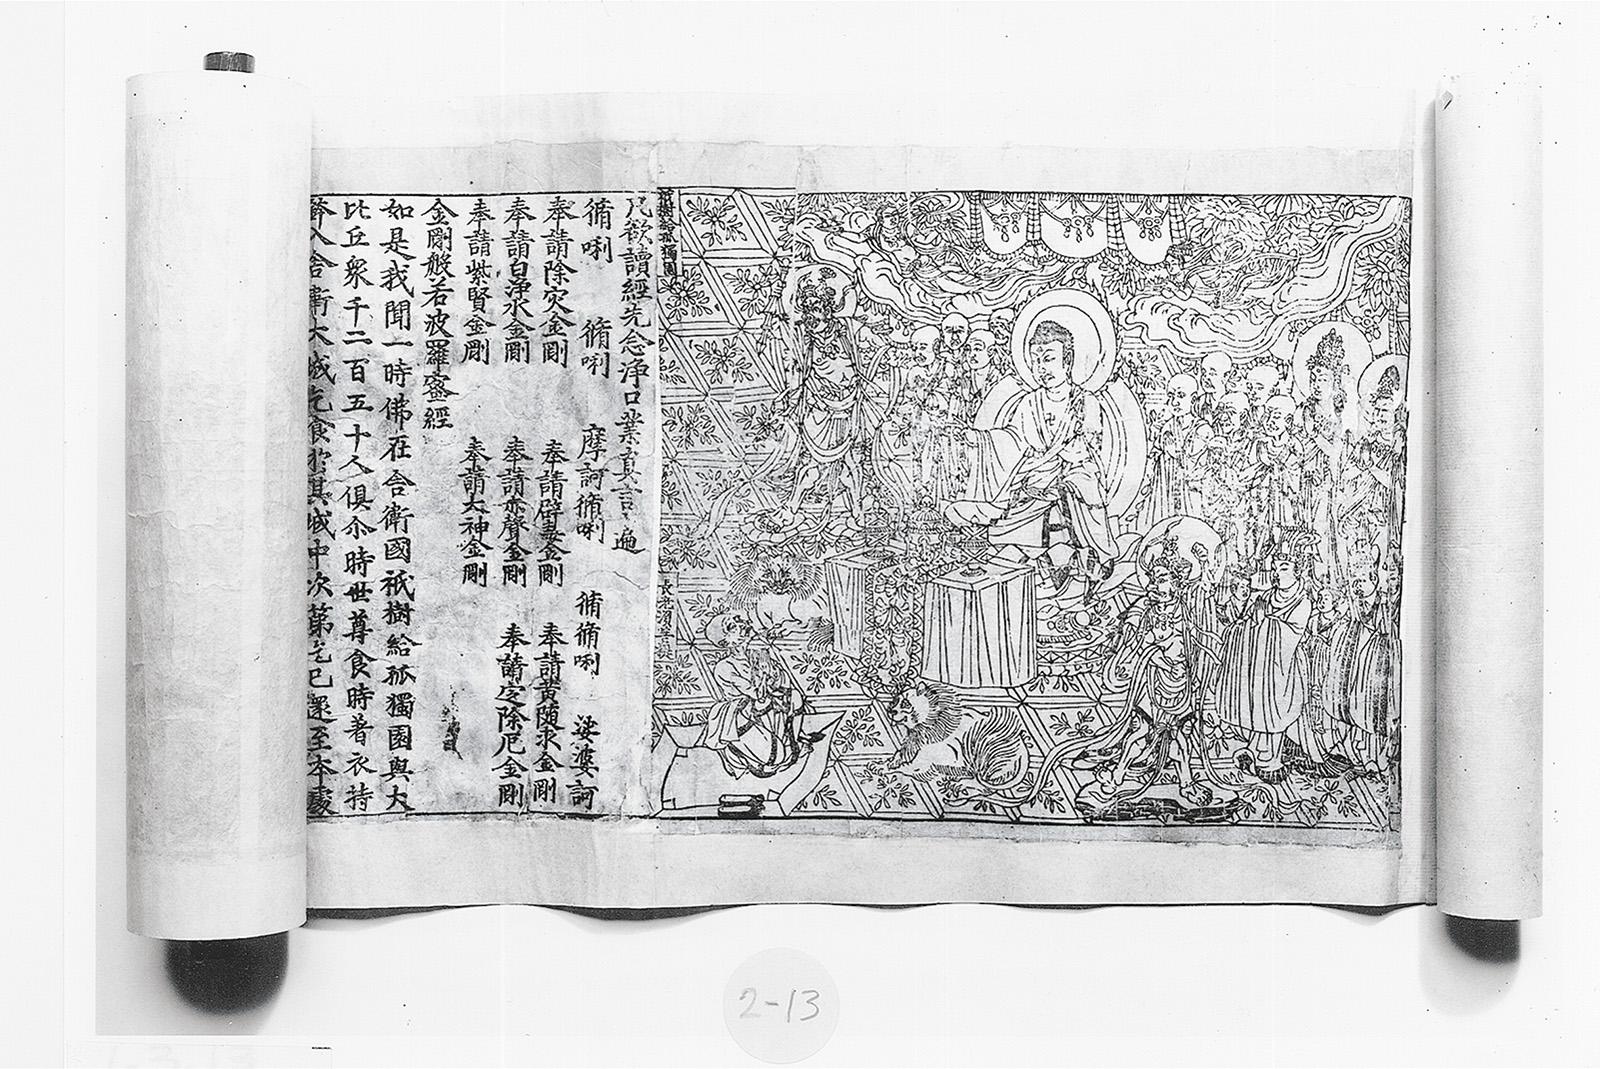 祇樹給孤獨園
長老須菩提
凡欲讀經先念淨口業真言一遍
脩唎 脩唎 摩訶脩唎 脩脩唎 娑婆訶
奉請除灾金剛 奉請辟毒金剛 奉請黃隨求金剛
奉請白淨水金剛 奉請赤聲金剛 奉請定除厄金剛
奉請紫賢金剛 奉請大神金剛
金剛般若波羅蜜經
如是我聞一時佛在舍衛國祇樹給孤獨園與大
比丘衆千二百五十人俱尒時世尊食時著衣持
鉢入舍衛大城乞食於其城中次第乞已還至本處
2-13